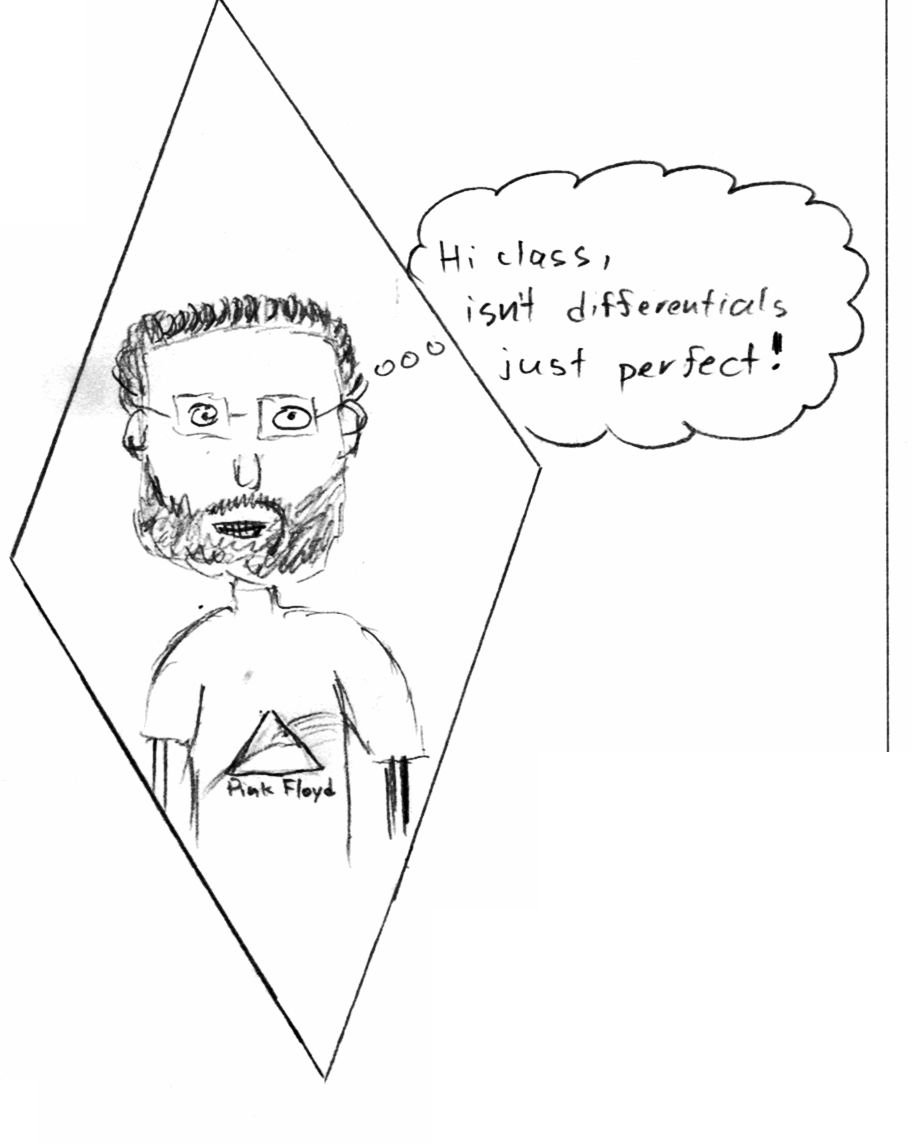 Hi class,
isn't differentials
just perfect!
Pink Floyd